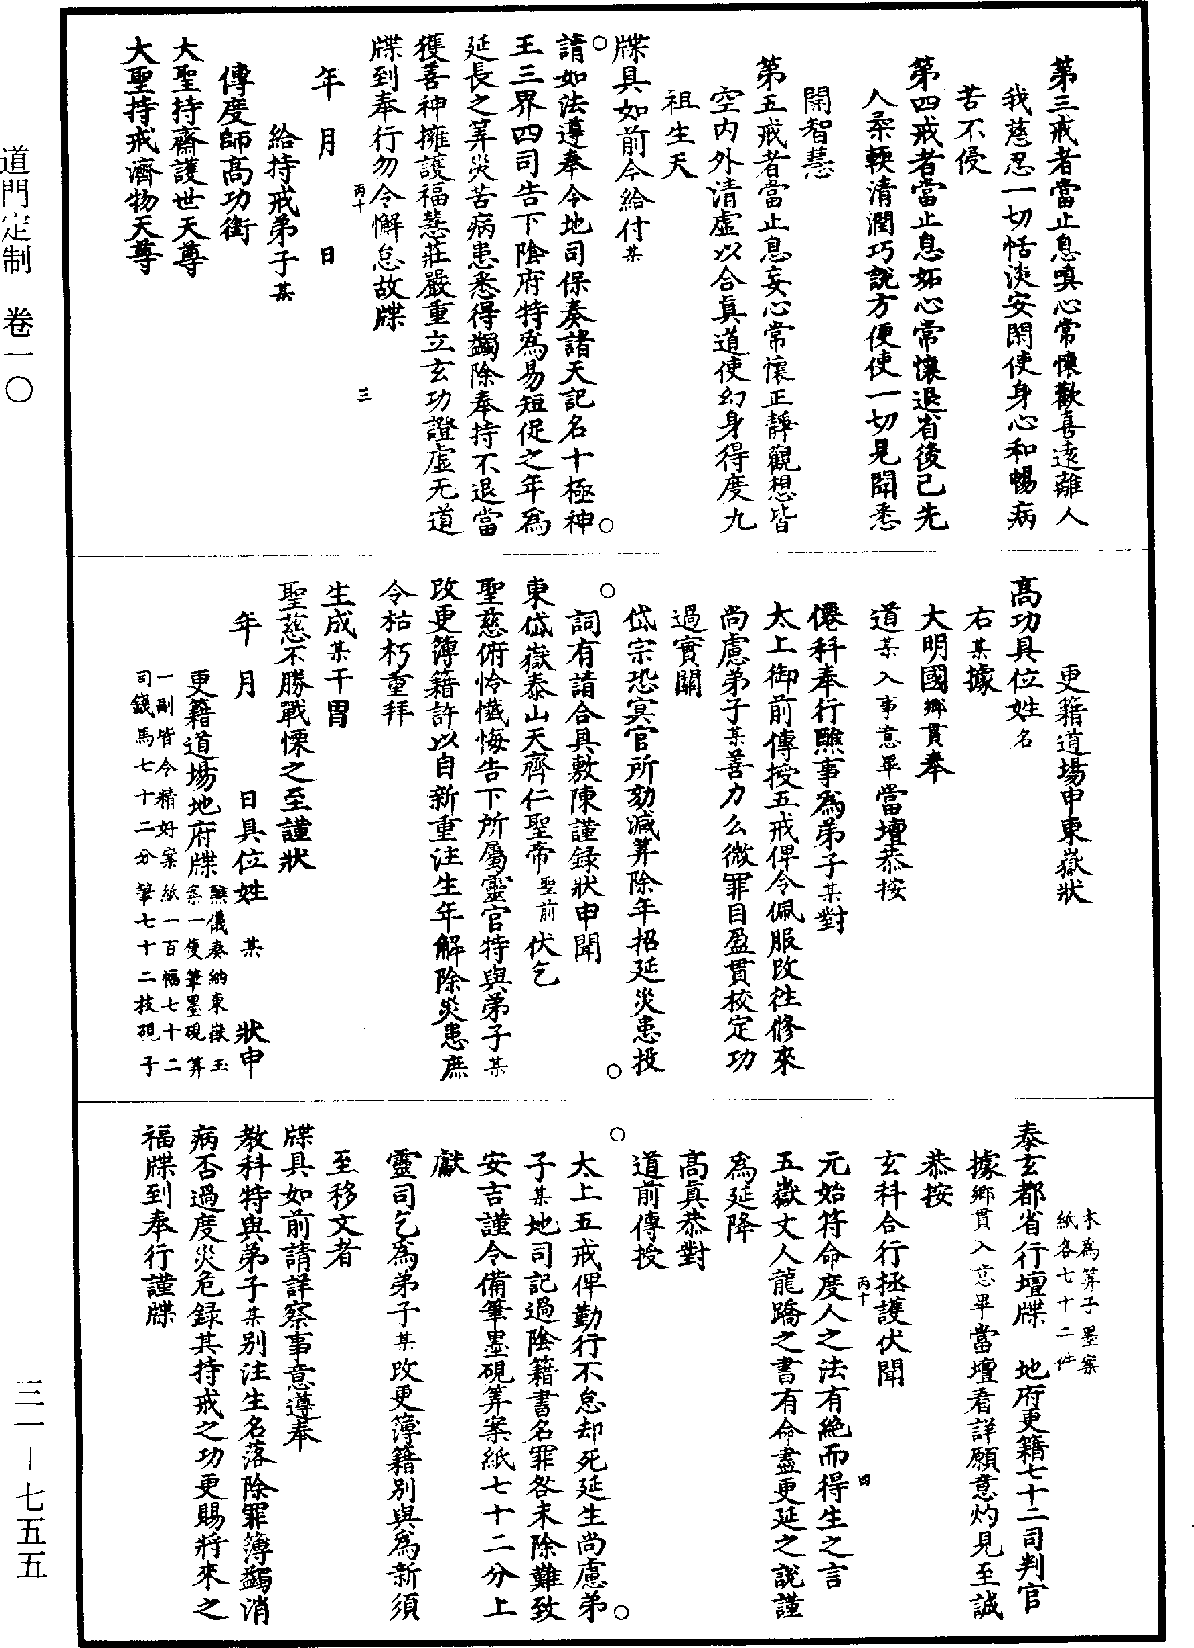 第三戒者當止息嗔心常懷歡喜遠離人
我慈忍一切恬淡安閑使身心和暢病
苦不侵
第四戒者當止息妬心常懷退省後己先
人柔輭清潤巧說方便使一切見聞悉
開智慧
第五戒者當止息妄心常懷正靜觀想皆
空內外清虛以合眞道使幻身得度九
祖生天
牒具如前今給付某
請如法遵奉令地司保奏諸天記名十極神
王三界四司告下陰府特爲易短促之年爲
延長之筭災苦病患悉得蠲除奉持不退當
獲善神擁護福慧莊嚴重立玄功證虛无道
牒到奉行勿令懈怠故牒
丙十 三
年 月 日
給持戒弟子某
傳度師高功銜
大聖持齋護世天尊
大聖持戒濟物天尊
更籍道場申東嶽狀
高功具位姓名
右某據
大明國鄉貫奉
道某入事意畢當壇恭按
僊科奉行醮事爲弟子某對
太上御前傳授五戒俾令佩服改往修來
尚慮弟子某善力么微罪目盈貫校定功
過實關
岱宗恐冥官所劾減筭除年招延災患投
詞有請合具敷陳謹錄狀申聞
東岱嶽泰山天齊仁聖帝聖前伏乞
聖慈俯怜懺悔告下所屬靈官特與弟子某
改更簿籍許以自新重注生年解除災患庶
令枯朽重拜
生成某干冒
聖慈不勝戰慄之至謹狀
年 月 日具位姓 某 狀申
更籍道場地府牒醮儀奏納東嶽玉
案一隻筆墨硯筭
一副皆令精好案紙一百幅七十二
司錢馬七十二分筆七十二枝硯子
木爲筭子墨案
紙各七十二件
泰玄都省行壇牒 地府更籍七十二司判官
據鄉貫入意畢當壇看詳願意灼見至誠
恭按
玄科合行拯護伏聞
丙十 四
元始符命度人之法有絶而得生之言
五嶽丈人龍蹻之書有命盡更延之說謹
爲延降
高眞恭對
道前傳授
太上五戒俾勤行不怠却死延生尚慮弟
子某地司記過陰籍書名罪咎未除難致
安吉謹令備筆墨硯筭案紙七十二分上
獻
靈司乞爲弟子某改更簿籍別與爲新須
至移文者
牒具如前請詳察事意遵奉
教科特與弟子某別注生名落除罪簿蠲消
病否過度災危錄其持戒之功更賜將來之
福牒到奉行謹牒
道門定制 卷一〇
三一－七五五